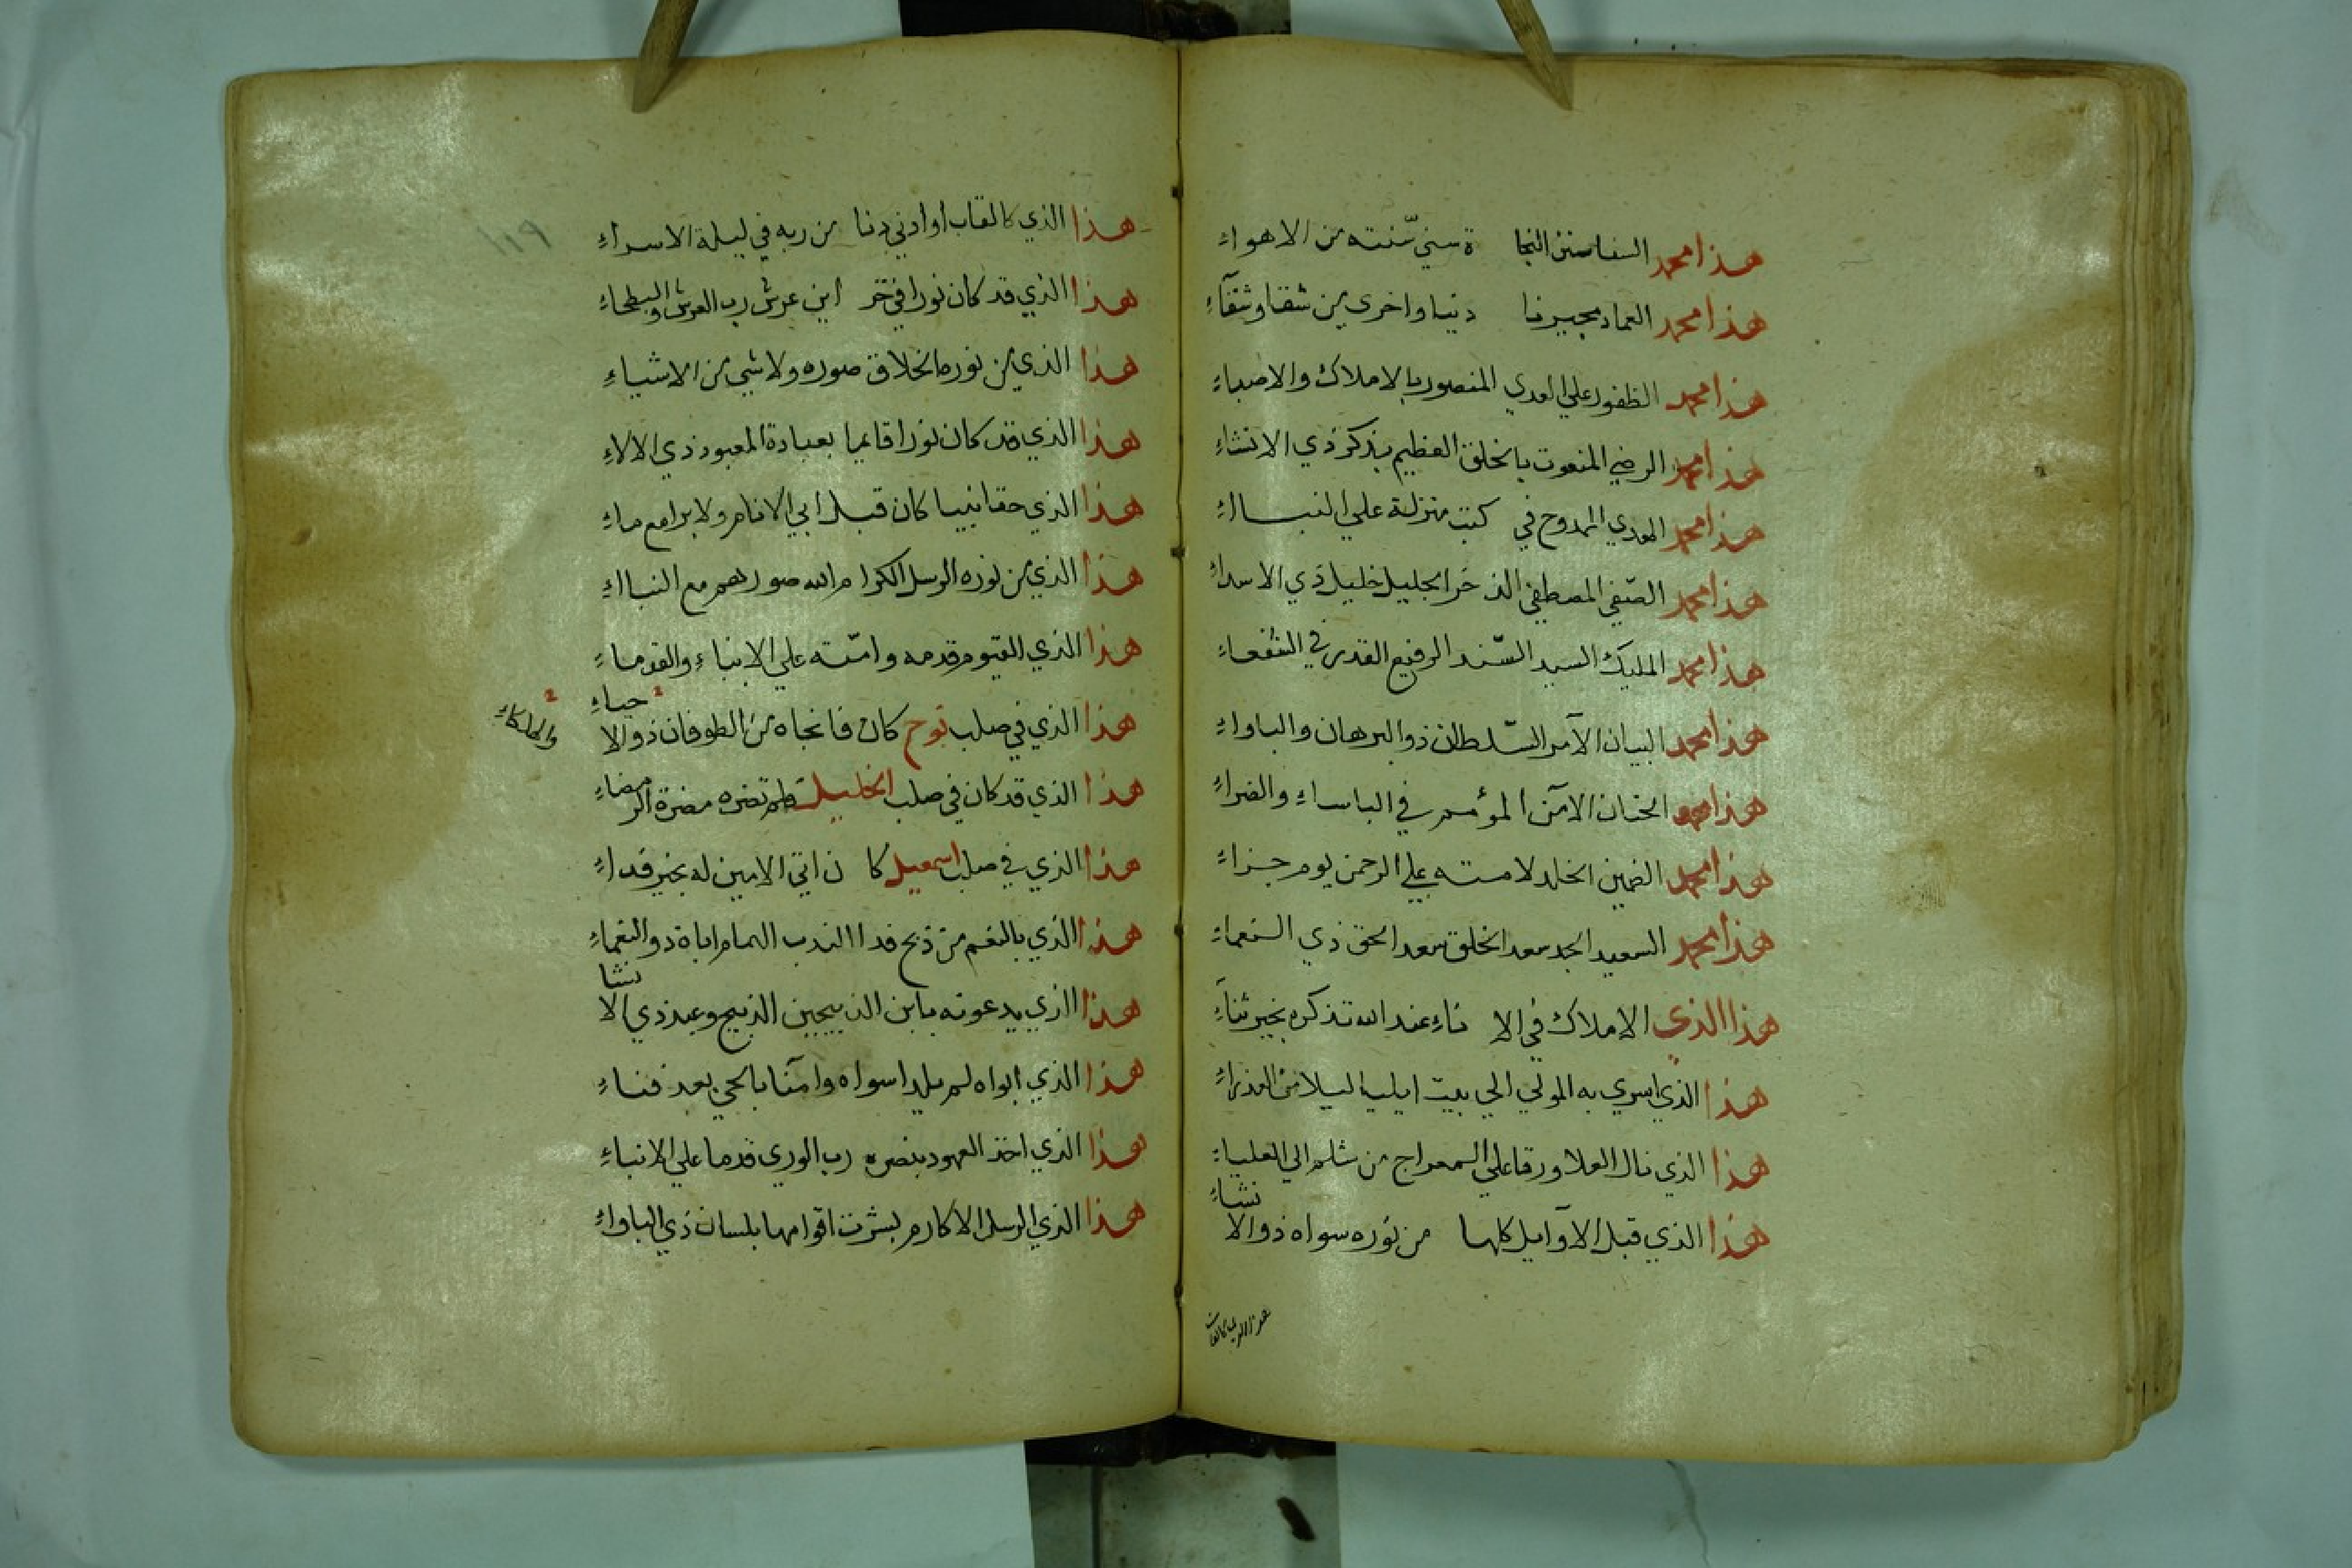 هذا محمد السفا سنن النجا ة سني سنته من الاهواءِ
هذا محمد العماد مجيرنا دنيا واخرى من شقا وشقآءِ
هذا محمد الظفور علي العدي المنصور بالاملاك والاصباءِ
هذا محمد الرضي المنعوت بالخلق العظيم بذكر ذي الانشاءِ
هذا محمد الهدي الممدوح في كتب منزلة علي النبااءِ
هذا محمد الصّفي المصطفي الجليل خليل ذي الاسداءِ
هذا محمد المليك السيد السّند الرفيع القدر في الشفعاءِ
هذا محمد البيان الآمر السّلطان ذو البرهان والباواءِ
هذا محمد الحنان الامن المؤمم في الباساءِ والضراءِ
هذا محمد الضمين الخلد لامته علي الرحمن يوم جزاءِ
هذا محمد السعيد الجد سعد الخلق سعد الحق ذي النعماءِ
هذا الذي الاملاك في الا ناءِ عند الله تذكره بخير ثنآءِ
هذا الذي اسري به المولي الي بيت ايليا ليلا من العذراءِ
هذا الذي نال العلا ورقا علي المعراج من شلم الي العلياءِ
هذا الذي قبل الاوآيل كلها من نوره سواه ذو الا نشاءِ
هذا الذي كالقاب
هذا الذي كالقاب او ادني دنا من ربه في ليلة الاسراءِ
هذا الذي قد كان نورا في قر اين عرش رب العرش والبطحاءِ
هذا الذي من نوره الخلاق صوره ولا شي من الاشياءِ
هذا الذي قد كان نورا قايما بعبادة المعبود ذي الالاءِ
هذا الذي حقا نبيا كان قبل ابي الانام ولا برا مع ماءِ
هذا الذي من نوره الرسل الكرام الله صورهم مع النبااءِ
هذا الذي القيوم قدمه وامّته علي الانباءِ والقدماءِ
والملكاءِ
هذا الذي في صلب نوح كان فانجاه من الطوفان ذو الا حياءِ
هذا الذي قد كان في صلب الخليل فلم تضره مضرة الرمضاءِ
هذا الذي في صلب اسمعيل كا ن اتي الامين له بخير فداءِ
هذا الذي بالنعم من ذبح فدا الندب الهمام اباه ذو النعماءِ
هذا الذي يدعونه بابن الذبيحين الذبيح وعبد ذي الا نشا
هذا الذي ابواه لم يلدا سواه وامنا بالحي بعد فناءِ
هذا الذي اخذ العهود بنصره رب الوري قدما علي الانباءِ
هذا الذي الرسل الاكارم بشرت اقوامها بلسان ذي الباواءِ